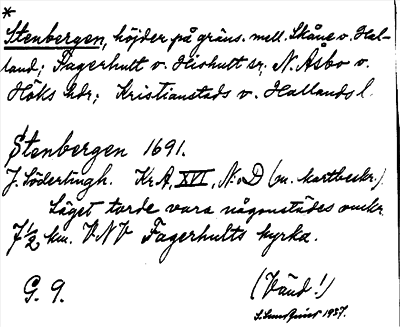 *
Stenbergen, höjder på gräns. mell. Skåne o. Hal-
land; Fagerhult o. Hishult sr; N. Åsbo o.
Höks hdr; Kristianstads o. Hallands l.
Stenbergen 1691.
J. Södertingh. Kr. A, XVI, N:o D (m. kartbeskr.)
Läget torde vara någonstädes omkr.
7½ km. VNV Fagerhults kyrka.
G. 9.
(Vänd!)
1937.